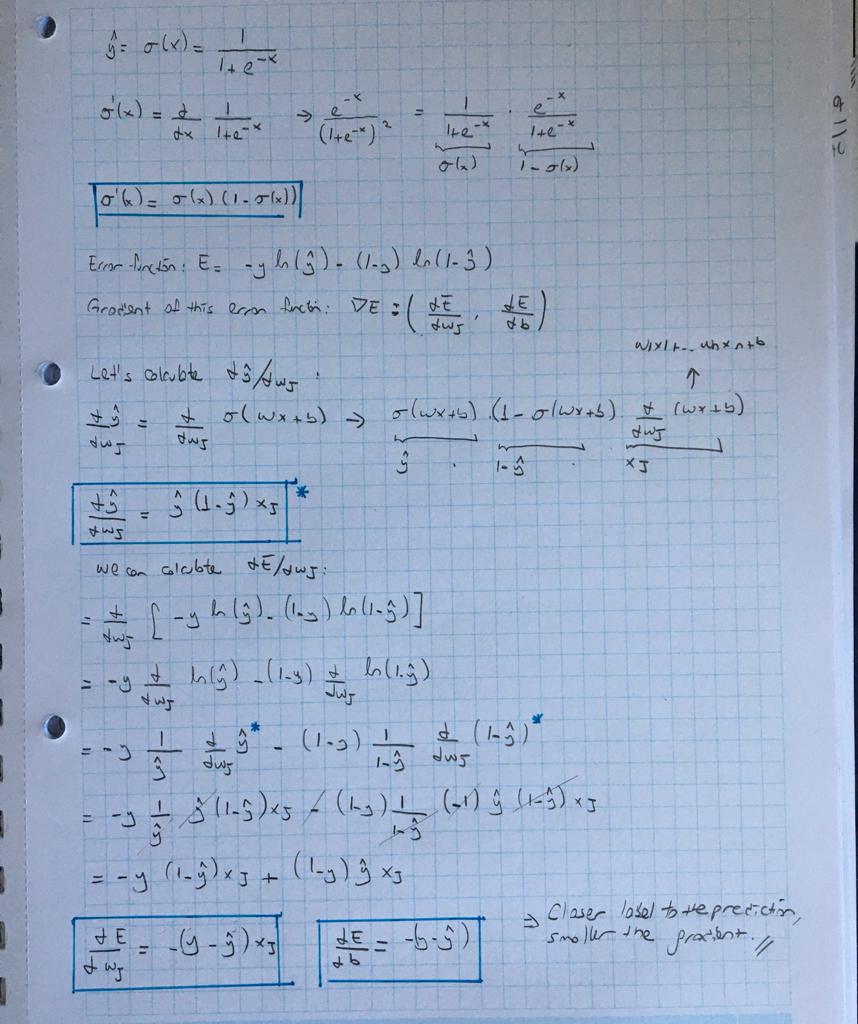 ŷ = σ(x) = 1 / (1 + e^-x)
σ'(x) = d/dx 1/(1+e^-x) → e^-x / (1+e^-x)^2 = 1/(1+e^-x) · e^-x/(1+e^-x)
σ(x) 1-σ(x)
σ'(x) = σ(x) (1 - σ(x))
Error function: E = -y ln(ŷ) - (1-y) ln(1-ŷ)
Gradient of this error function: ∇E = (dE/dwJ, dE/db)
w1x1+... wnxn+b
↑
Let's calculate dŷ/dwJ :
dŷ/dwJ = d/dwJ σ(wx+b) → σ(wx+b) . (1 - σ(wx+b) . d/dwJ (wx+b)
ŷ . 1-ŷ . xJ
dŷ/dwJ = ŷ (1-ŷ) xJ *
we can calculate dE/dwJ:
= d/dwJ [ -y ln(ŷ) - (1-y) ln(1-ŷ) ]
= -y d/dwJ ln(ŷ) - (1-y) d/dwJ ln(1-ŷ)
= -y 1/ŷ d/dwJ ŷ* - (1-y) 1/(1-ŷ) d/dwJ (1-ŷ)*
= -y 1/ŷ ŷ (1-ŷ) xJ - (1-y) 1/(1-ŷ) (-1) ŷ (1-ŷ) xJ
= -y (1-ŷ) xJ + (1-y) ŷ xJ
dE/dwJ = -(y - ŷ) xJ dE/db = -(y - ŷ) ⇒ Closer label to the prediction,
smaller the gradient. //